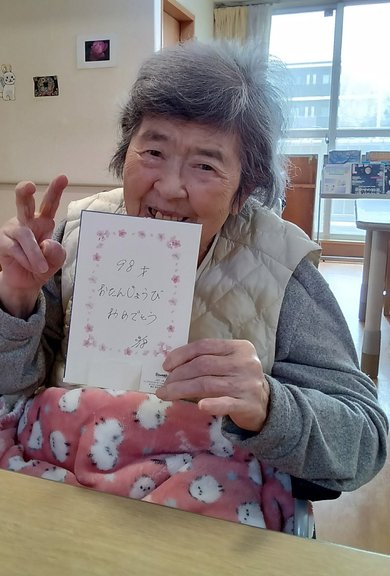 98才
おたんじょうび
おめでとう